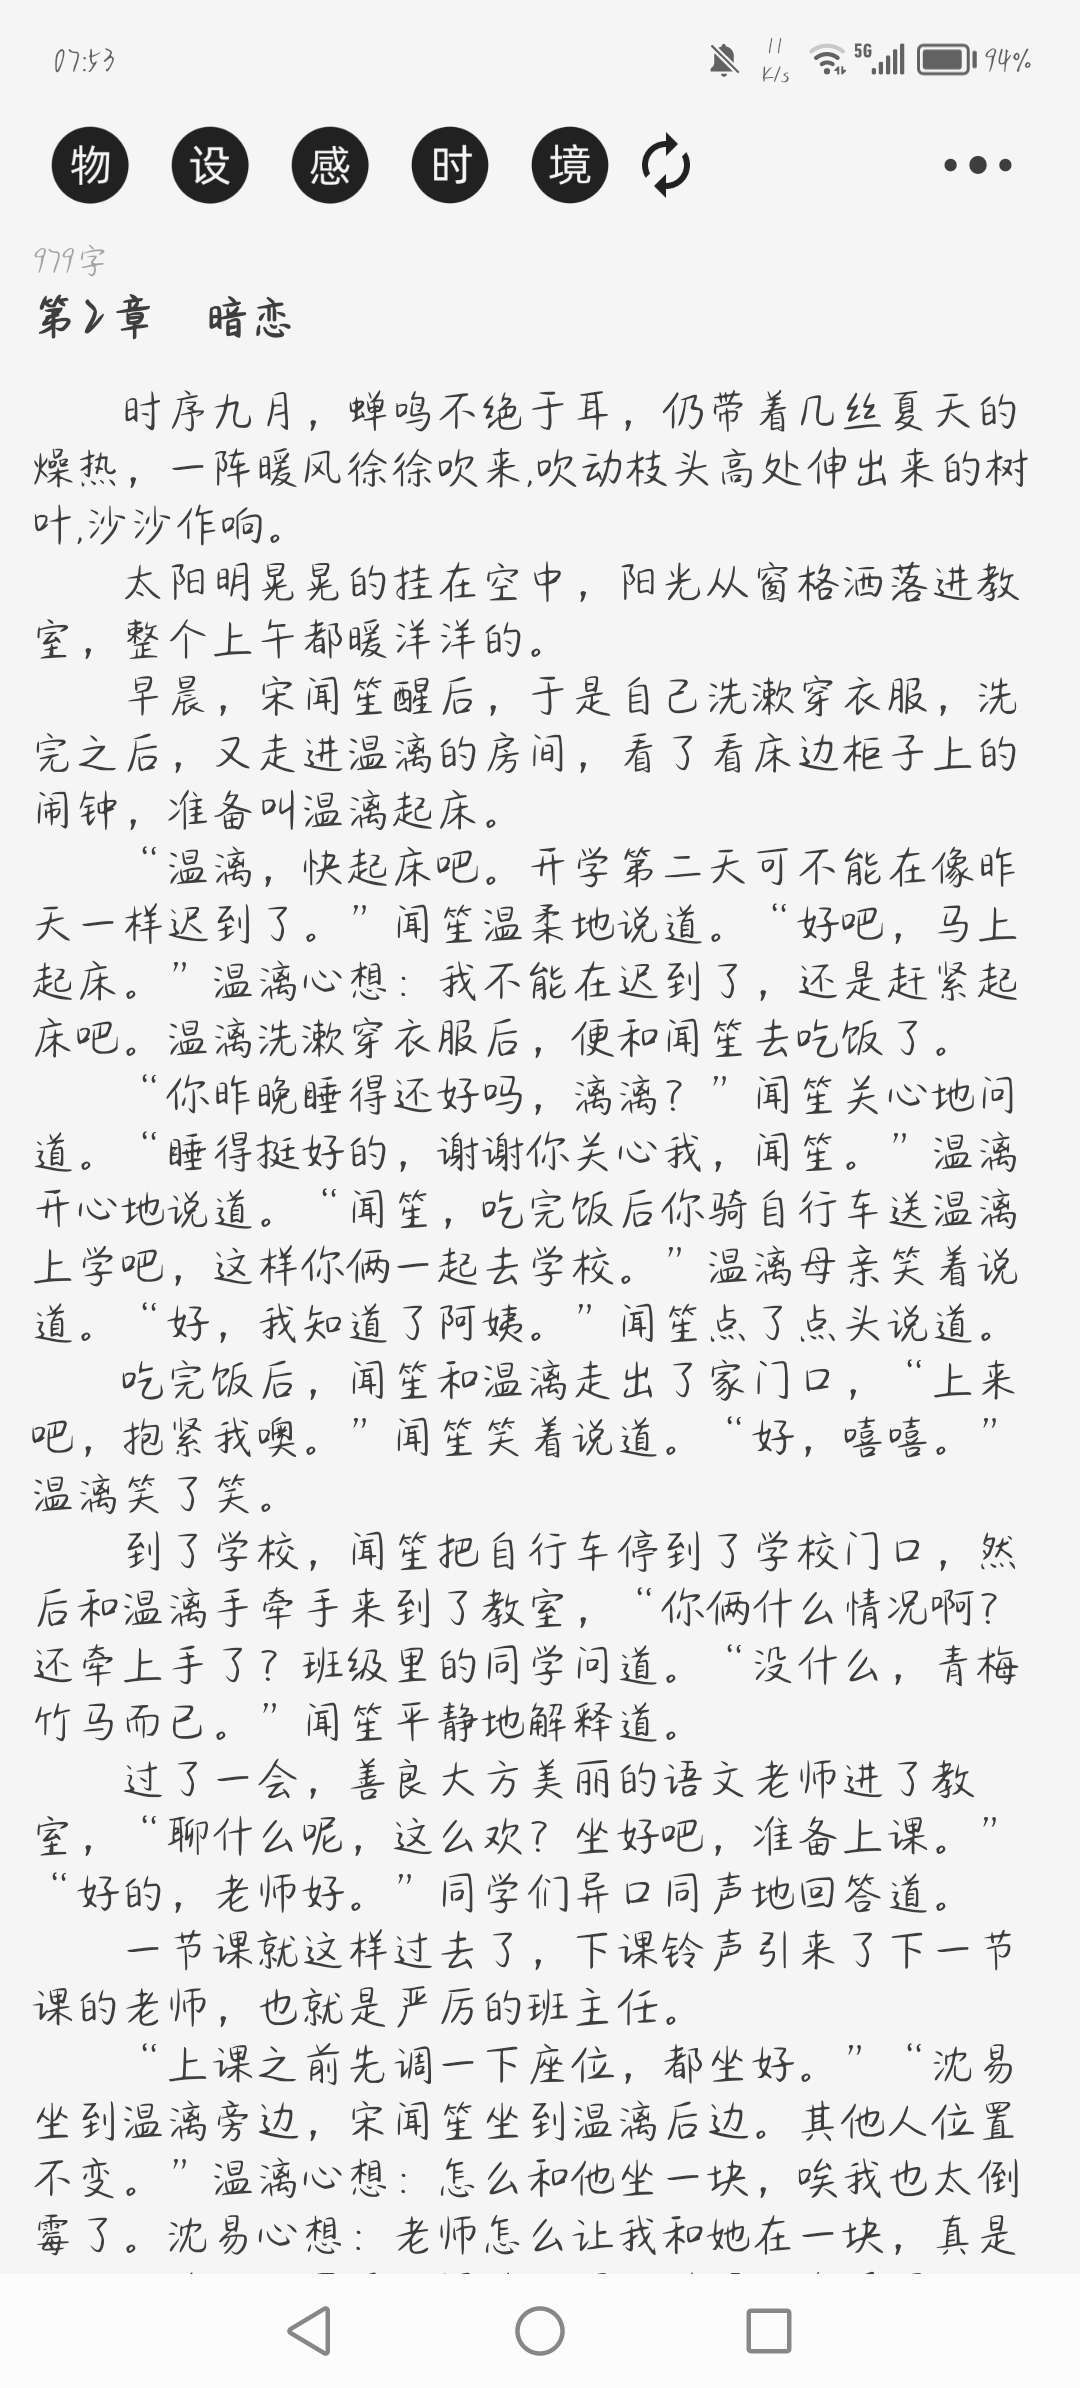 07:53
11
K/s
5G
94%
物 设 感 时 境
979字
第2章 暗恋
时序九月，蝉鸣不绝于耳，仍带着几丝夏天的
燥热，一阵暖风徐徐吹来,吹动枝头高处伸出来的树
叶,沙沙作响。
太阳明晃晃的挂在空中，阳光从窗格洒落进教
室，整个上午都暖洋洋的。
早晨，宋闻笙醒后，于是自己洗漱穿衣服，洗
完之后，又走进温漓的房间，看了看床边柜子上的
闹钟，准备叫温漓起床。
“温漓，快起床吧。开学第二天可不能在像昨
天一样迟到了。”闻笙温柔地说道。“好吧，马上
起床。”温漓心想：我不能在迟到了，还是赶紧起
床吧。温漓洗漱穿衣服后，便和闻笙去吃饭了。
“你昨晚睡得还好吗，漓漓？”闻笙关心地问
道。“睡得挺好的，谢谢你关心我，闻笙。”温漓
开心地说道。“闻笙，吃完饭后你骑自行车送温漓
上学吧，这样你俩一起去学校。”温漓母亲笑着说
道。“好，我知道了阿姨。”闻笙点了点头说道。
吃完饭后，闻笙和温漓走出了家门口，“上来
吧，抱紧我噢。”闻笙笑着说道。“好，嘻嘻。”
温漓笑了笑。
到了学校，闻笙把自行车停到了学校门口，然
后和温漓手牵手来到了教室，“你俩什么情况啊？
还牵上手了？班级里的同学问道。“没什么，青梅
竹马而已。”闻笙平静地解释道。
过了一会，善良大方美丽的语文老师进了教
室，“聊什么呢，这么欢？坐好吧，准备上课。”
“好的，老师好。”同学们异口同声地回答道。
一节课就这样过去了，下课铃声引来了下一节
课的老师，也就是严厉的班主任。
“上课之前先调一下座位，都坐好。”“沈易
坐到温漓旁边，宋闻笙坐到温漓后边。其他人位置
不变。”温漓心想：怎么和他坐一块，唉我也太倒
霉了。沈易心想：老师怎么让我和她在一块，真是